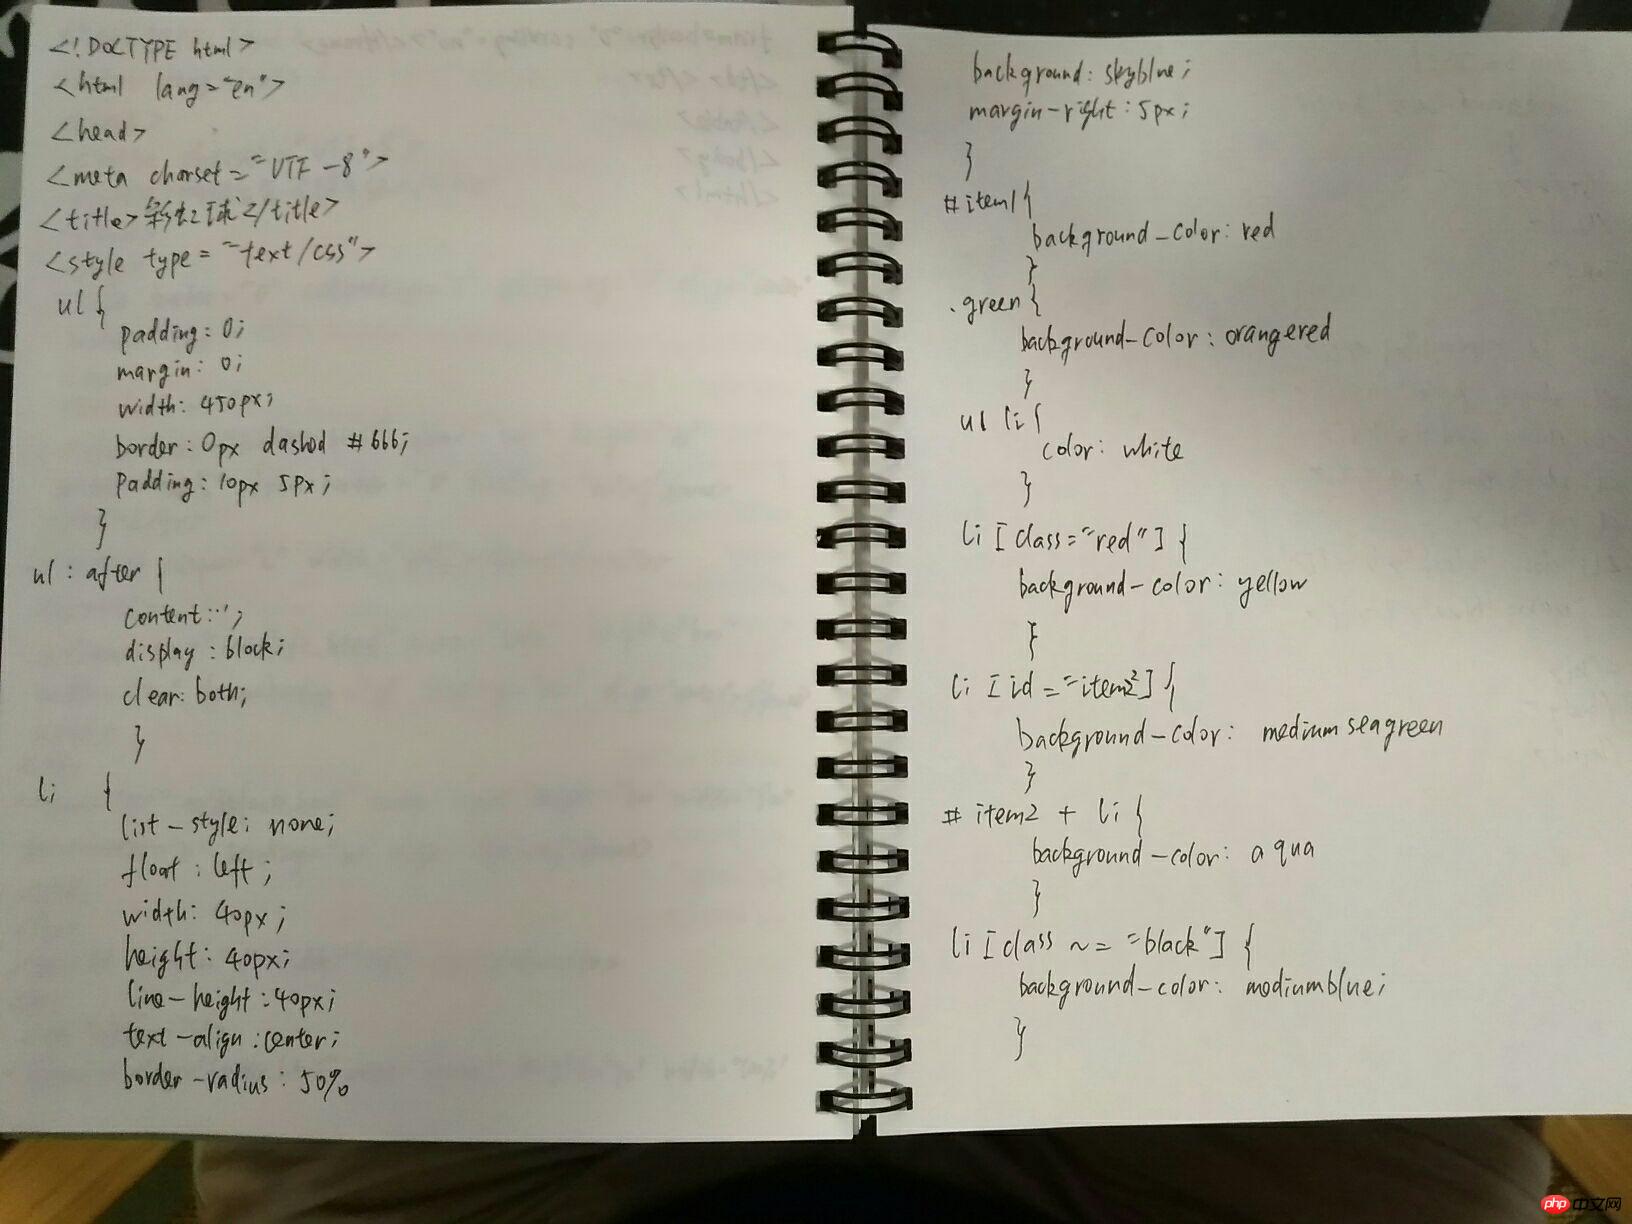 <!DOCTYPE html>
<html lang="en">
<head>
<meta charset="UTF-8">
<title>彩虹球</title>
<style type="text/css">
ul{
padding:0;
margin:0;
width:450px;
border:0px dashed #666;
padding:10px 5px;
}
ul:after{
content:'';
display:block;
clear:both;
}
li {
list-style:none;
float:left;
width:40px;
height:40px;
line-height:40px;
text-align:center;
border-radius:50%
background:skyblue;
margin-right:5px;
}
#item1{
background-color:red
}
.green{
background-color:orangered
}
ul li{
color:white
}
li[class="red"]{
background-color:yellow
}
li[id="item2"]{
background-color:mediumseagreen
}
#item2 + li{
background-color:aqua
}
li[class ~="black"]{
background-color:mediumblue;
}
php中文网